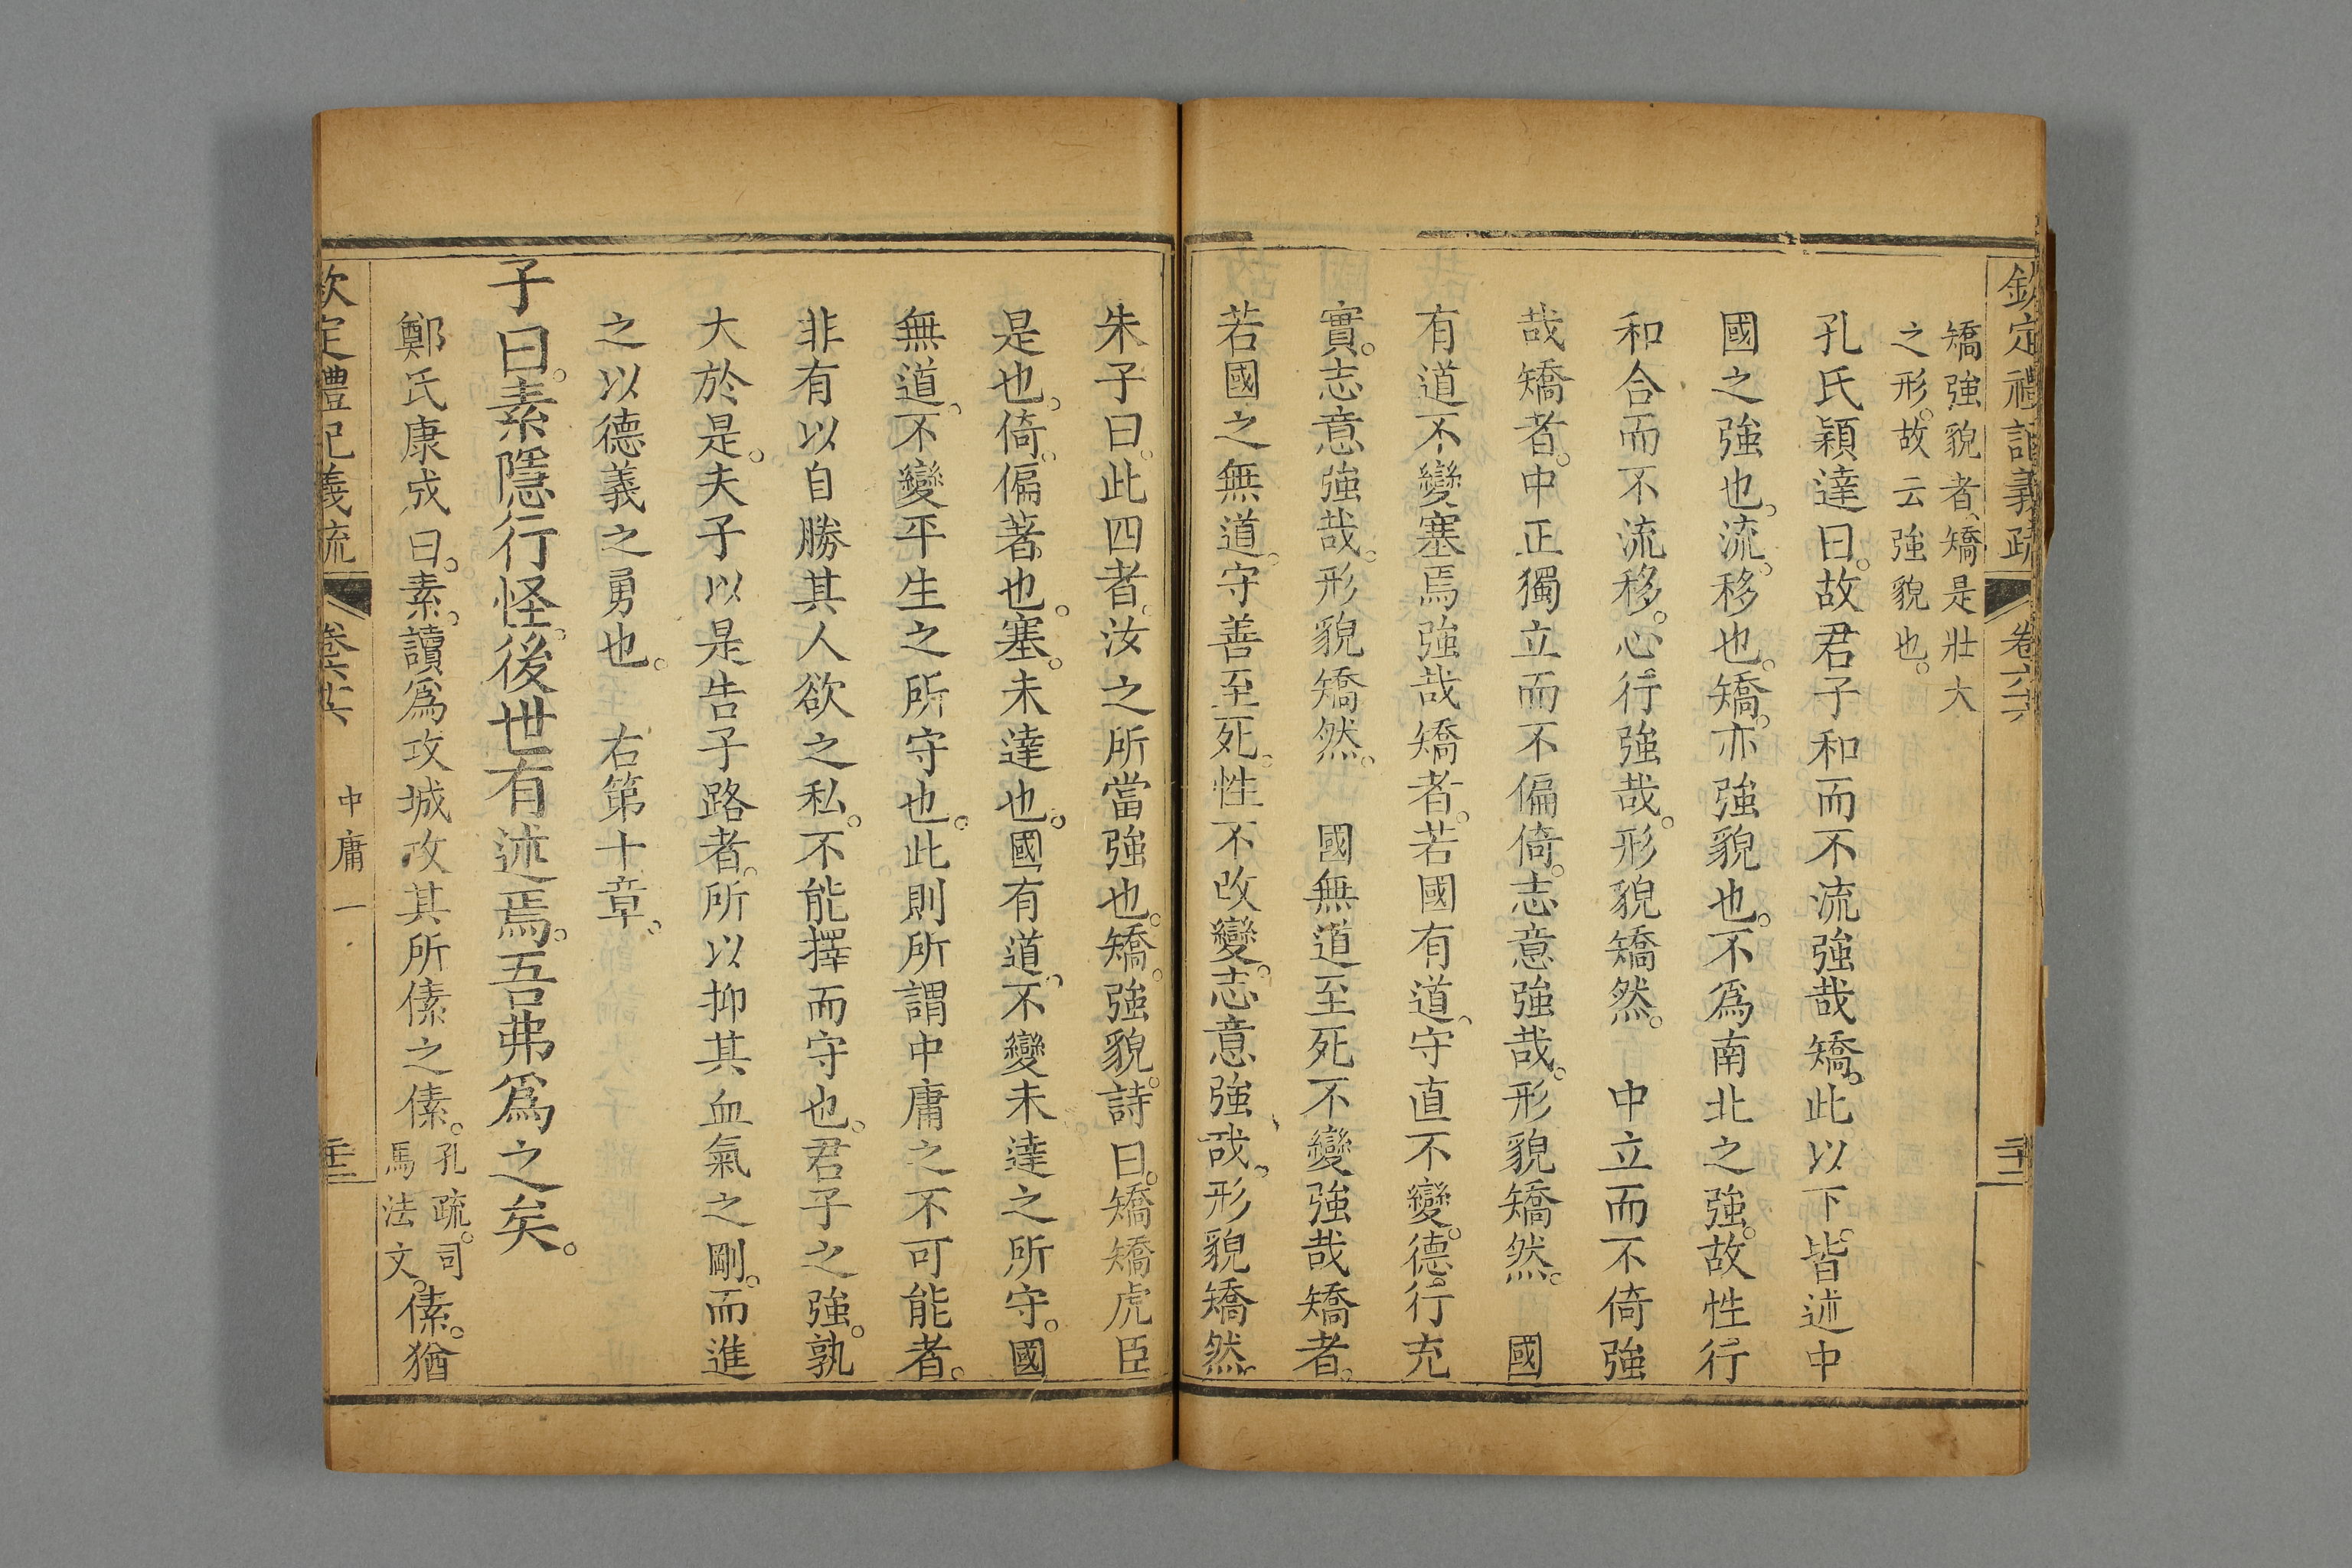 欽定禮記義疏 卷六十六 二十二
矯強貌者矯是壯大
之形故云強貌也
孔氏穎達曰故君子和而不流強哉矯此以下皆述中
國之強也流移也矯亦強貌也不爲南北之強故性行
和合而不流移心行強哉形貌矯然 中立而不倚強
哉矯者中正獨立而不偏倚志意強哉形貌矯然 國
有道不變塞焉強哉矯者若國有道守直不變德行充
實志意強哉形貌矯然 國無道至死不變強哉矯者
若國之無道守善至死性不改變志意強哉形貌矯然
朱子曰此四者汝之所當強也矯強貌詩曰矯矯虎臣
是也倚偏著也塞未達也國有道不變未達之所守國
無道不變平生之所守也此則所謂中庸之不可能者
非有以自勝其人欲之私不能擇而守也君子之強孰
大於是夫子以是告子路者所以抑其血氣之剛而進
之以德義之勇也 右第十章
子曰素隱行怪後世有述焉吾弗爲之矣
鄭氏康成曰素讀爲攻城攻其所傃之傃
孔疏司
馬法文
傃猶
欽定禮記義疏 卷六十六 中庸一 二十二